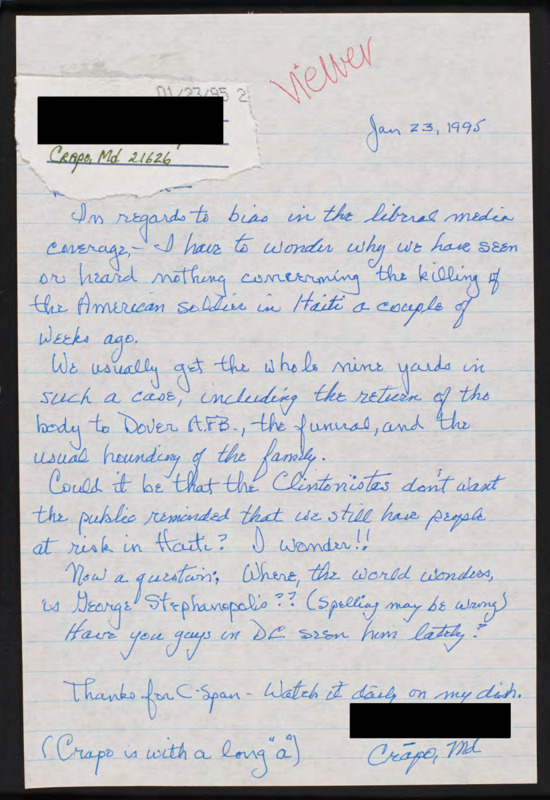 Viewer
01/23/95 2
Crapo, Md 21626
Jan 23, 1995
In regards to bias in the liberal media
coverage,- I have to wonder why we have seen
or heard nothing concerning the killing of
the American soldier in Haiti a couple of
weeks ago.
We usually get the whole nine yards in
such a case, including the return of the
body to Dover A.F.B., the funeral, and the
usual hounding of the family.
Could it be that the Clintonistas don't want
the public reminded that we still have people
at risk in Haiti? I wonder!!
Now a question; Where, the world wonders,
is George Stephanopolis?? (Spelling may be wrong)
Have you guys in DC seen him lately?
Thanks for C-Span - Watch it daily on my dish.
(Crapo is with a long "a")
Crāpo, Md